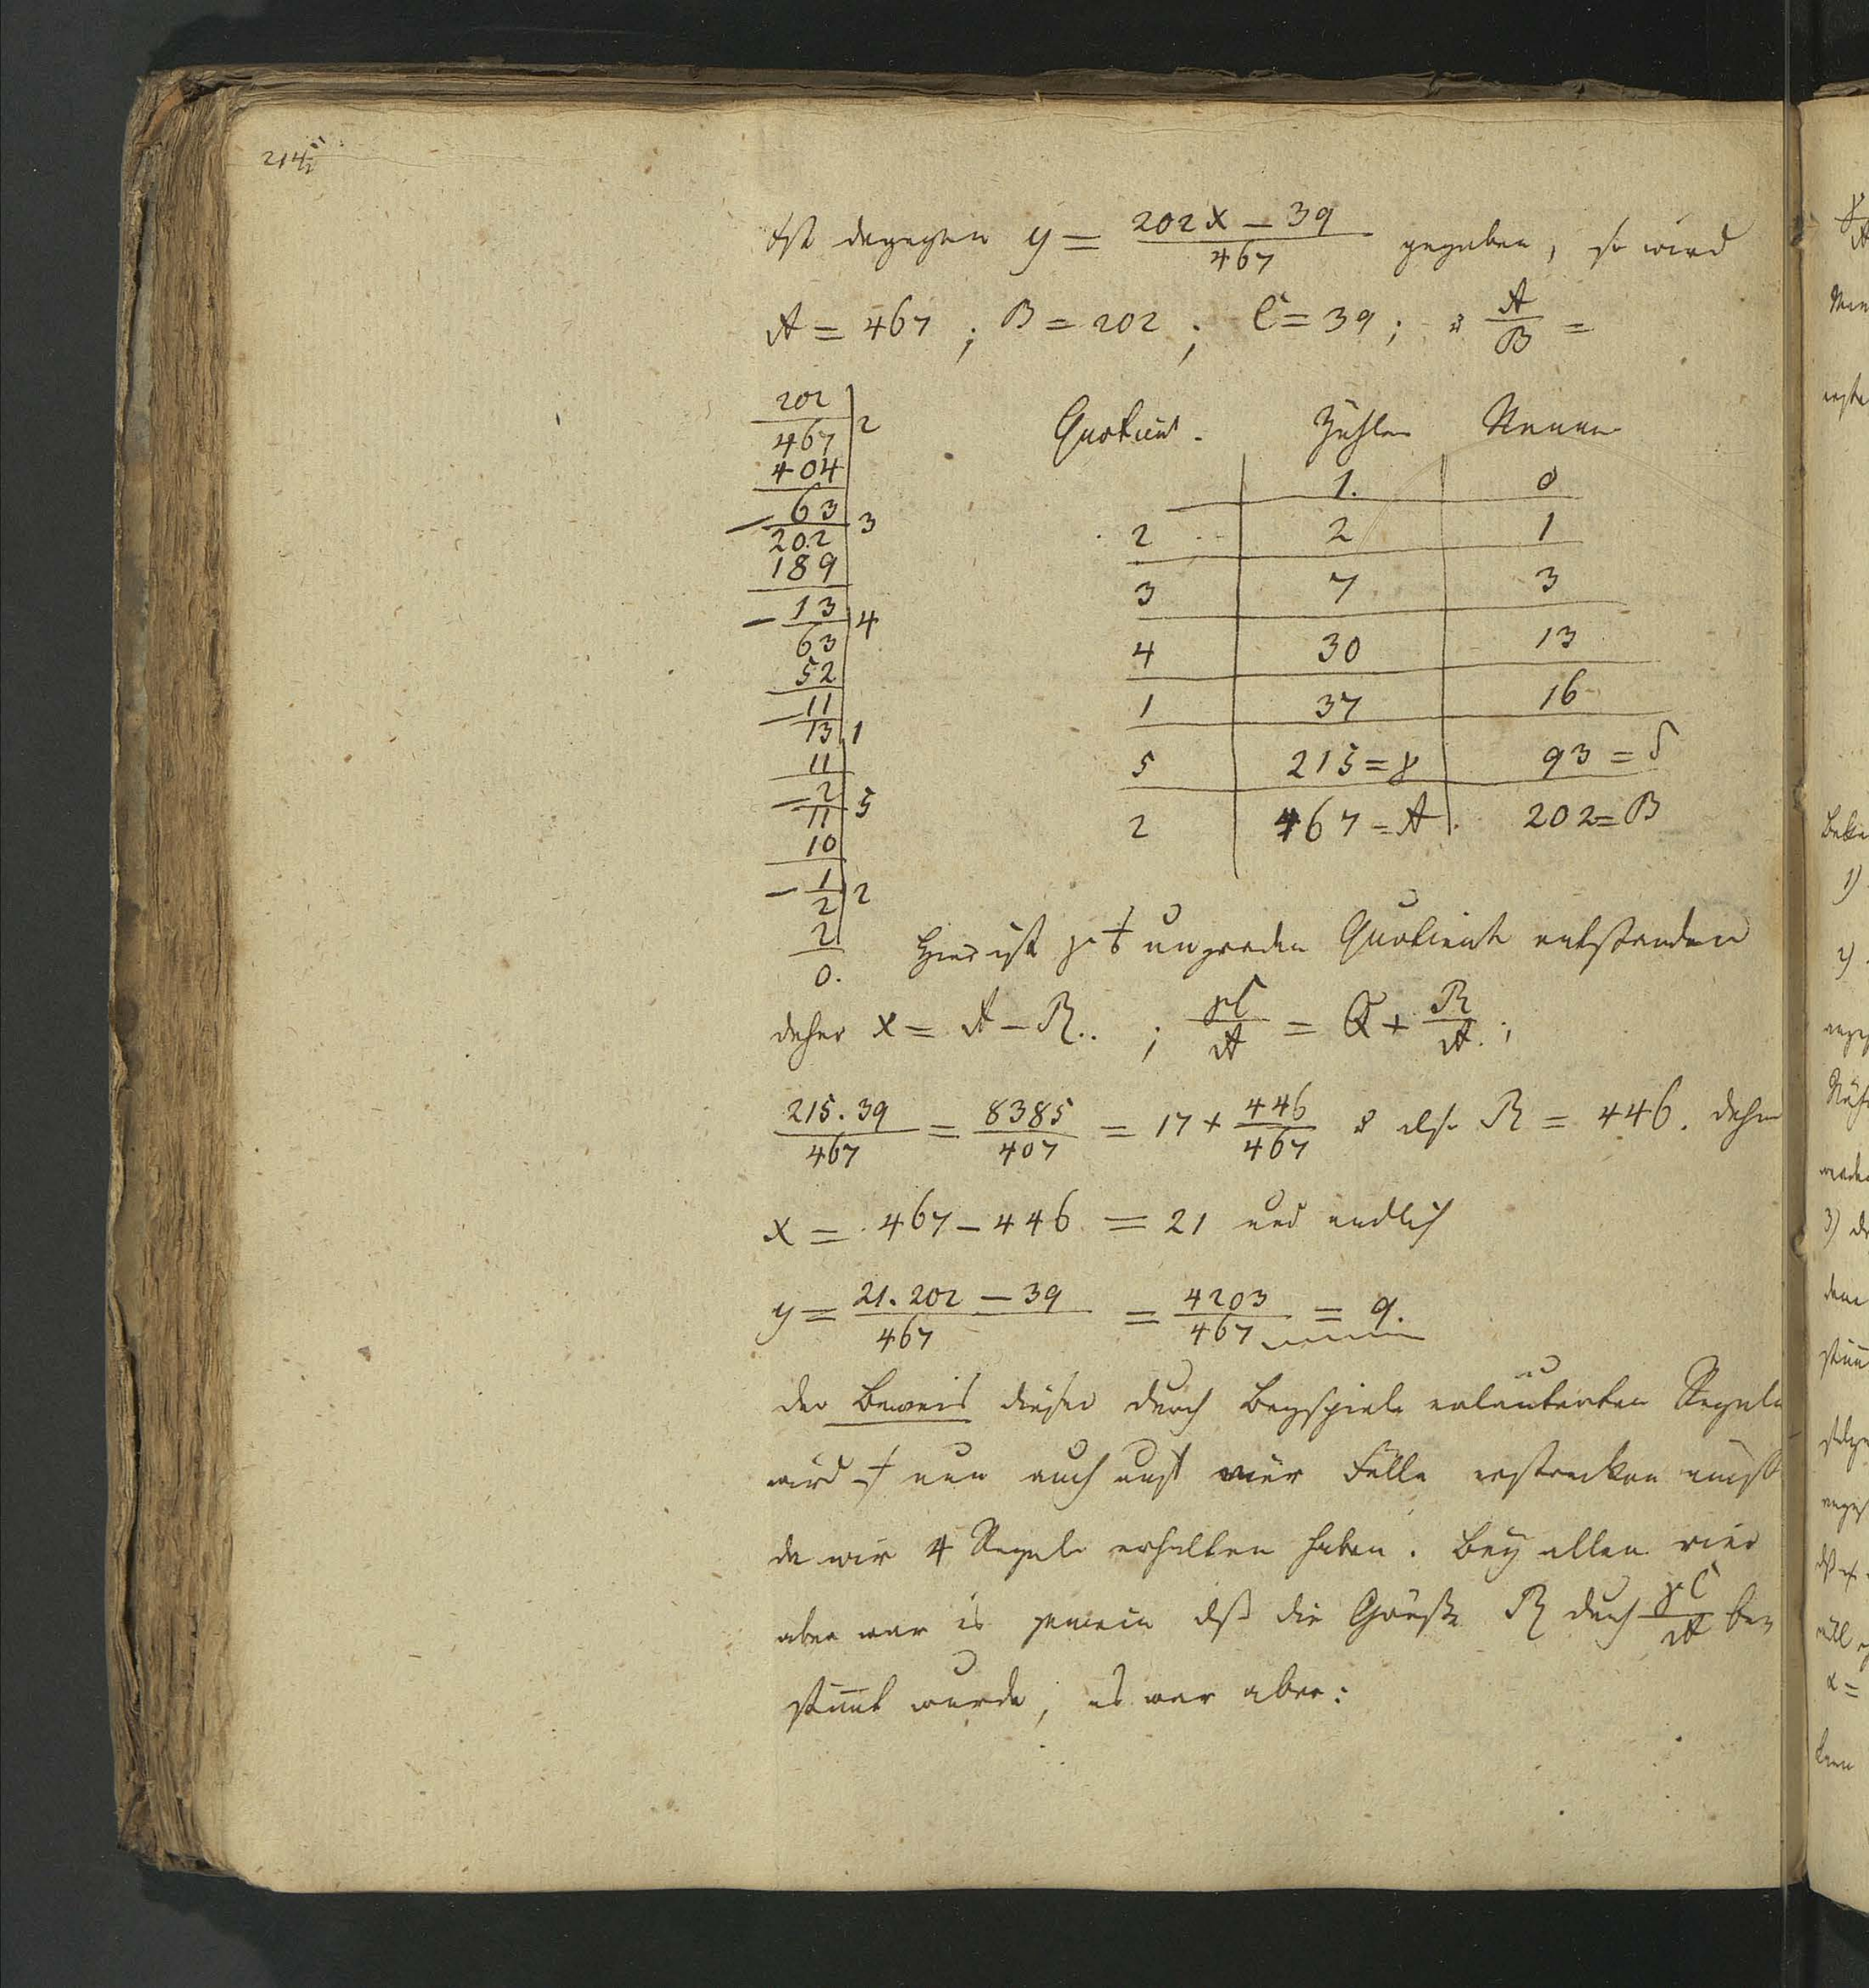 Ist dagegen y = (202x − 39)/467 gegeben, so wird
A = 467 ; B = 202 ; C = 39 ; A/B =
202
467 | 2
404
63
202 | 3
189
13
63 | 4
52
11
13 | 1
11
2
11 | 5
10
1
2 | 2
2
0.
Quotient. Zähler Nenner
1. 0
2 2 1
3 7 3
4 30 13
1 37 16
5 215 = γ 93 = δ
2 467 = A. 202 = B
Hier ist ungraden Quotient entstanden
daher x = A − R.. ; γC/A = Q + R/A. ;
215.39/467 = 8385/407 = 17 + 446/467 also R = 446. daher
x = 467 − 446 = 21 und endlich
y = (21.202 − 39)/467 = 4203/467 = 9.
der Beweis dieser durch Beyspiele erläuterten Regeln
wird nun auch auf vier Fälle erstrecken
da wir 4 Regeln erhalten haben. Bey allen vier
aber war es gemein daß die Größe R durch γC/A be
stim̄t wurde, es war aber: